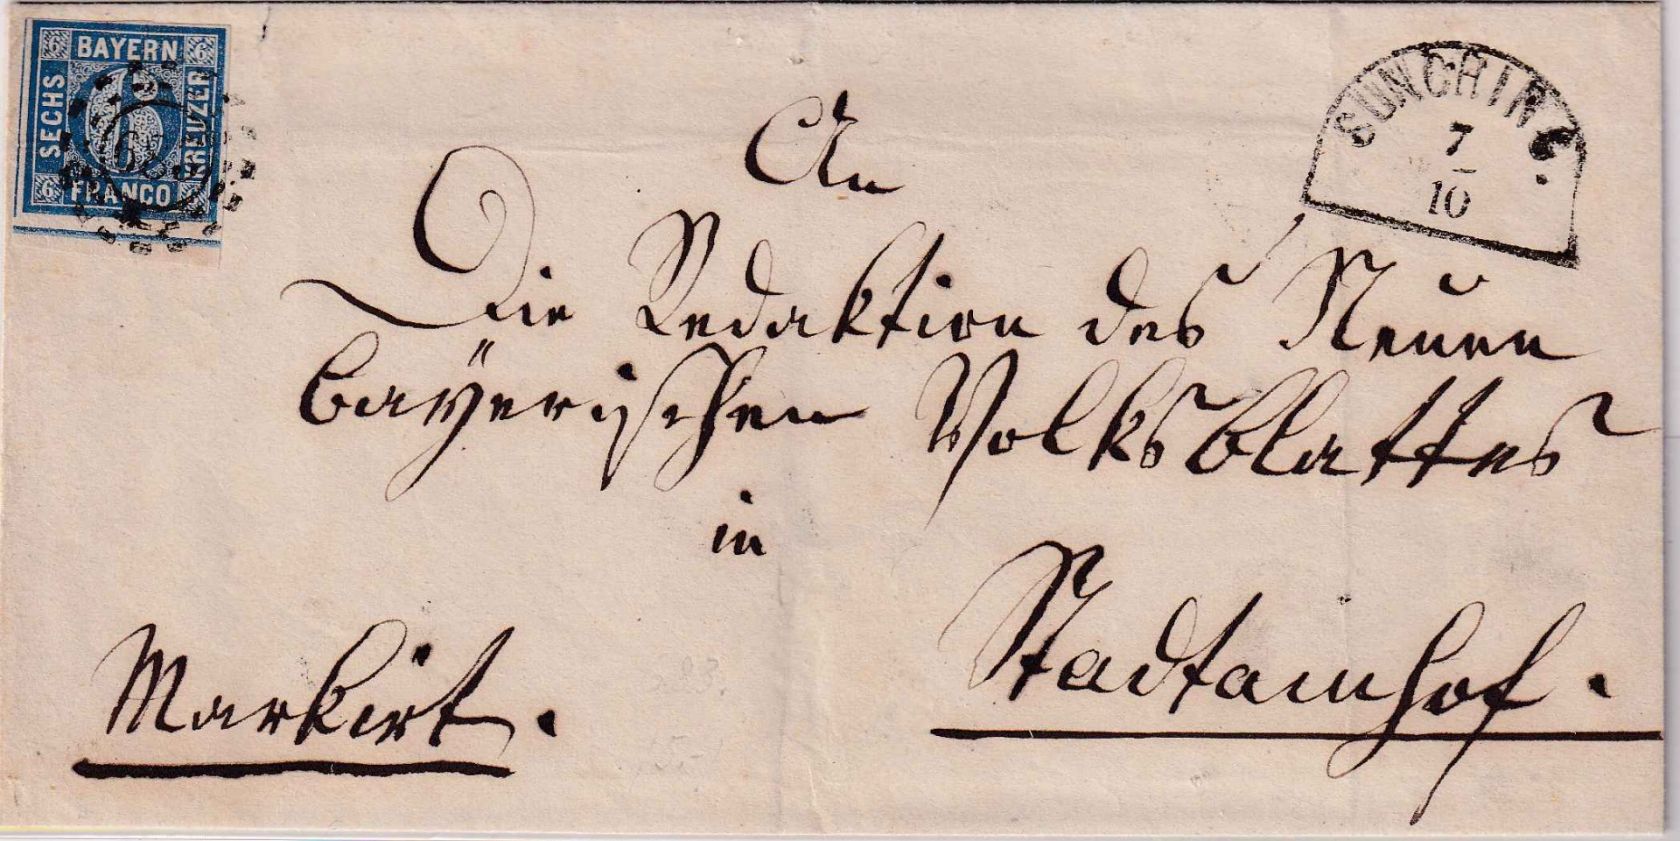 6 BAYERN 6
SECHS
6
KREUZER
6 FRANCO
SÜNCHING.
7
10
An
Die Redaktion des Neuen
bayerischen Volksblattes
in
Stadtamhof.
Markirt.